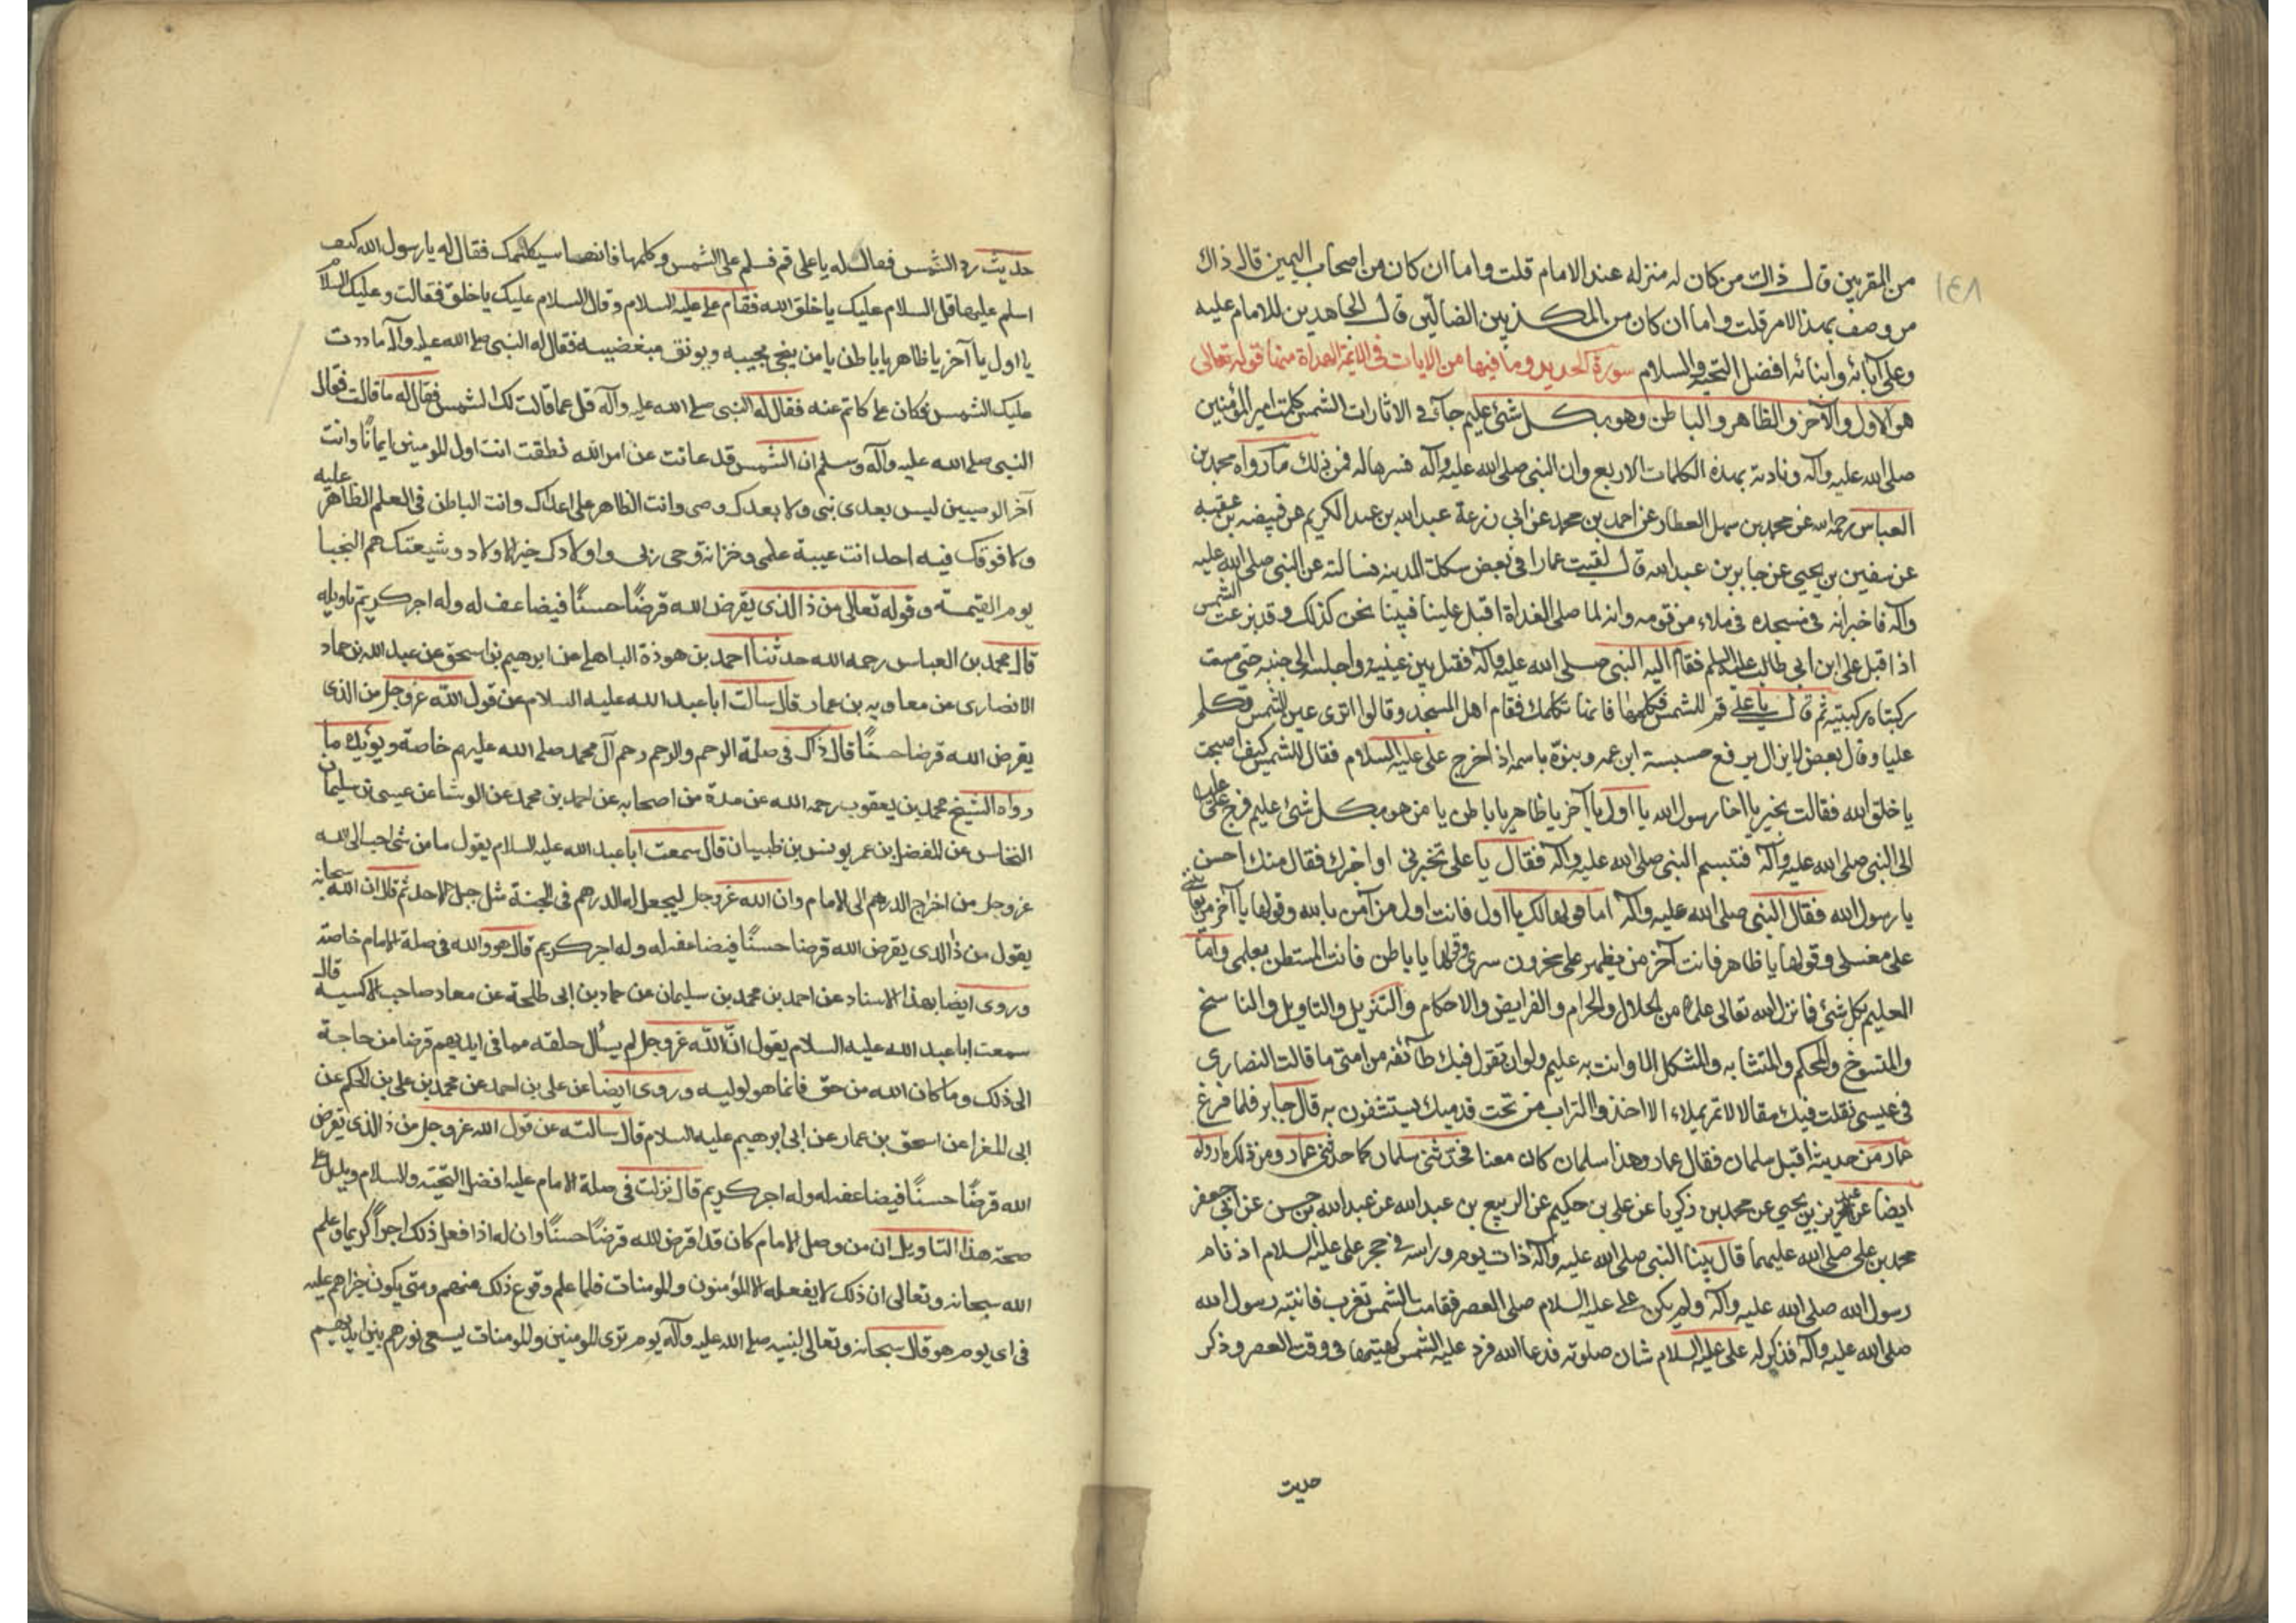 ١٤٨
من المقربين قال ذاك من كان له منزله عند الامام قلت واما ان كان من اصحاب اليمين قال ذاك
من وصف بهذا الامر قلت واما ان كان من المكذبين الضالين قال الجاهدين للامام عليه
وعلى آبائه وابنائه افضل التحيه والسلام سورة الحديد وما فيها من الايات في الائمة الهداة منها قوله تعالى
هو الاول والآخر والظاهر والباطن وهو بكل شئ عليم جآء في الاثارات الشمس كلمت امير المؤمنين
صلى الله عليه وآله ونادته بهذه الكلمات الاربع وان النبي صلى الله عليه وآله فسرها له فمن ذلك ما رواه محمد بن
العباس رحمه الله عن محمد بن سهل العطار عن احمد بن محمد عن ابي زرعة عبد الله بن عبد الكريم عن قبيضه بن عقبه
عن سفين بن يحيى عن جابر بن عبد الله قال لقيت عمارا في بعض سكك المدينه فسالته عن النبي صلى الله عليه
وآله فاخبر انه في مسجده في ملاء من قومه وانه لما صلى الغداة اقبل علينا فبينا نحن كذلك وقد بزغت الشمس
اذ اقبل علي ابن ابي طالب عليه السلم فقام اليه النبي صلى الله عليه وآله فقبل بين عينيه واجلسه الى جنبه حتى مست
ركبتاه ركبتيه ثم قال يا علي قم للشمس فكلمها فانها تكلمك فقام اهل المسجد وقالوا اترى عين الشمس تكلم
عليا وقال بعض لايزال يرفع حسيسة ابن عمه وينوّه باسمه اذ اخرج علي عليه السلام فقال للشمس كيف اصبحت
يا خلق الله فقالت بخير يا اخا رسول الله يا اول يا آخر يا ظاهر يا باطن يا من هو بكل شئ عليم فرجع علي عليه
الى النبي صلى الله عليه وآله فتبسم النبي صلى الله عليه وآله فقال يا علي تخبرني او اخبرك فقال منك احسن
يا رسول الله فقال النبي صلى الله عليه وآله اما قولها لك يا اول فانت اول من آمن بالله وقولها يا آخر من يعاينني
على مغسلي وقولها يا ظاهر فانت آخر من يظهر على مخزون سري وقولها يا باطن فانت المستبطن بعلمي واما
العليم بكل شئ فما نزل الله تعالى علما من الحلال والحرام والفرايض والاحكام والتنزيل والتاويل والناسخ
والمنسوخ والمحكم والمتشابه والمشكل الا وانت به عليم ولولا ان تقول فيك طآئفه من امتي ما قالت النصارى
في عيسى لقلت فيك مقالا لا تمر بملاء الا اخذوا التراب من تحت قدميك يستشفون به قال جابر فلما فرغ
عمار من حديثه اقبل سلمان فقال عمار وهذا سلمان كان معنا فحدثني سلمان كما حدثني عمار ومن ذلك ما رواه
ايضا عن عبد العزيز بن يحيى عن محمد بن ذكريا عن علي بن حكيم عن الربيع بن عبد الله عن عبد الله بن حسن عن ابي جعفر
محمد بن علي صلى الله عليهما قال بينا النبي صلى الله عليه وآله ذات يوم وراسه في حجر علي عليه السلام اذ نام
رسول الله صلى الله عليه وآله ولم يكن علي عليه السلام صلى العصر فقامت الشمس تغرب فانتبه رسول الله
صلى الله عليه وآله فذكر له علي عليه السلام شان صلوته فدعا الله فرد عليه الشمس كهيئتها في وقت العصر وذكر
حديث
حديث رد الشمس فقال له يا علي قم فسلم على الشمس وكلمها فانها سيكلمك فقال له يا رسول الله كيف
اسلم عليها قل السلام عليك يا خلق الله فقام علي عليه السلام وقال السلام عليك يا خلق الله فقالت وعليك السلام
يا اول يا آخر يا ظاهر يا باطن يا من ينجي محبيه ويوثق مبغضيه فقال له النبي صلى الله عليه وآله ما ردت
عليك الشمس فكان علي كاتم عنه فقال له النبي صلى الله عليه وآله قل عما قالت لك الشمس فقال له ما قالت فقال
النبي صلى الله عليه وآله وسلم ان الشمس قد عانت عن امر الله نطقت انت اول المومنين ايمانًا وانت
آخر الوصيين ليس بعدي نبي ولا بعدك وصي وانت الظاهر على اعدائك وانت الباطن في العلم الظاهر عليه
ولا فوقك فيه احد انت عيبة علمي وخزانة وحي ربي واولادك خير الاولاد وشيعتك هم النجبا
يوم القيمة وقوله تعالى من ذا الذي يقرض الله قرضًا حسنًا فيضاعف له وله اجر كريم تاويله
قال محمد بن العباس رحمه الله حدثنا احمد بن هوذة الباهلي عن ابرهيم بن اسحق عن عبد الله بن حماد
الانصاري عن معاويه بن عمار قال سالت ابا عبد الله عليه السلام عن قول الله عز وجل من الذي
يقرض الله قرضا حسنًا قال ذاك في صلة الرحم والرحم رحم آل محمد صلى الله عليهم خاصة ويؤيد ما
رواه الشيخ محمد بن يعقوب رحمه الله عن عدة من اصحابه عن احمد بن محمد عن الوشا عن عيسى بن سليمان
النخاس عن المفضل بن عمر يونس بن ظبيان قال سمعت ابا عبد الله عليه السلام يقول ما من شئ احب الى الله
عز وجل من اخراج الدرهم الى الامام وان الله عز وجل ليجعل له الدرهم في الجنة مثل جبل احد ثم قال ان الله سبحانه
يقول من ذا الذي يقرض الله قرضا حسنًا فيضاعفه له وله اجر كريم قال هو والله في صلة الامام خاصة
وروى ايضا بهذا الاسناد عن احمد بن محمد بن سليمان عن حماد بن ابي طلحة عن معاد صاحب الاكسيه قال
سمعت ابا عبد الله عليه السلام يقول انّ الله عز وجل لم يسأل خلقه مما في ايديهم قرضا من حاجة
الى ذلك وما كان الله من حق فانما هو لوليه وروى ايضا عن علي بن احمد عن محمد بن علي بن الحكم عن
ابي المغرا عن اسحق بن عمار عن ابي ابرهيم عليه السلام قال سالته عن قول الله عز وجل من ذا الذي يقرض
الله قرضًا حسنًا فيضاعفه له وله اجر كريم قال نزلت في صلة الامام عليه افضل التحيّة والسلام ويدل على
صحة هذا التاويل ان من وصل الامام كان قد اقرض الله قرضًا حسنًا وان له اذا فعل ذلك اجراً كريما وعلم
الله سبحانه وتعالى ان ذلك لا يفعله الا المؤمنون والمومنات فلما علم وقوع ذلك منهم ومتى يكون جزاهم عليه
في اي يوم هو قال سبحانه وتعالى لنبيه صلى الله عليه وآله يوم ترى المومنين والمومنات يسعى نورهم بين ايديهم